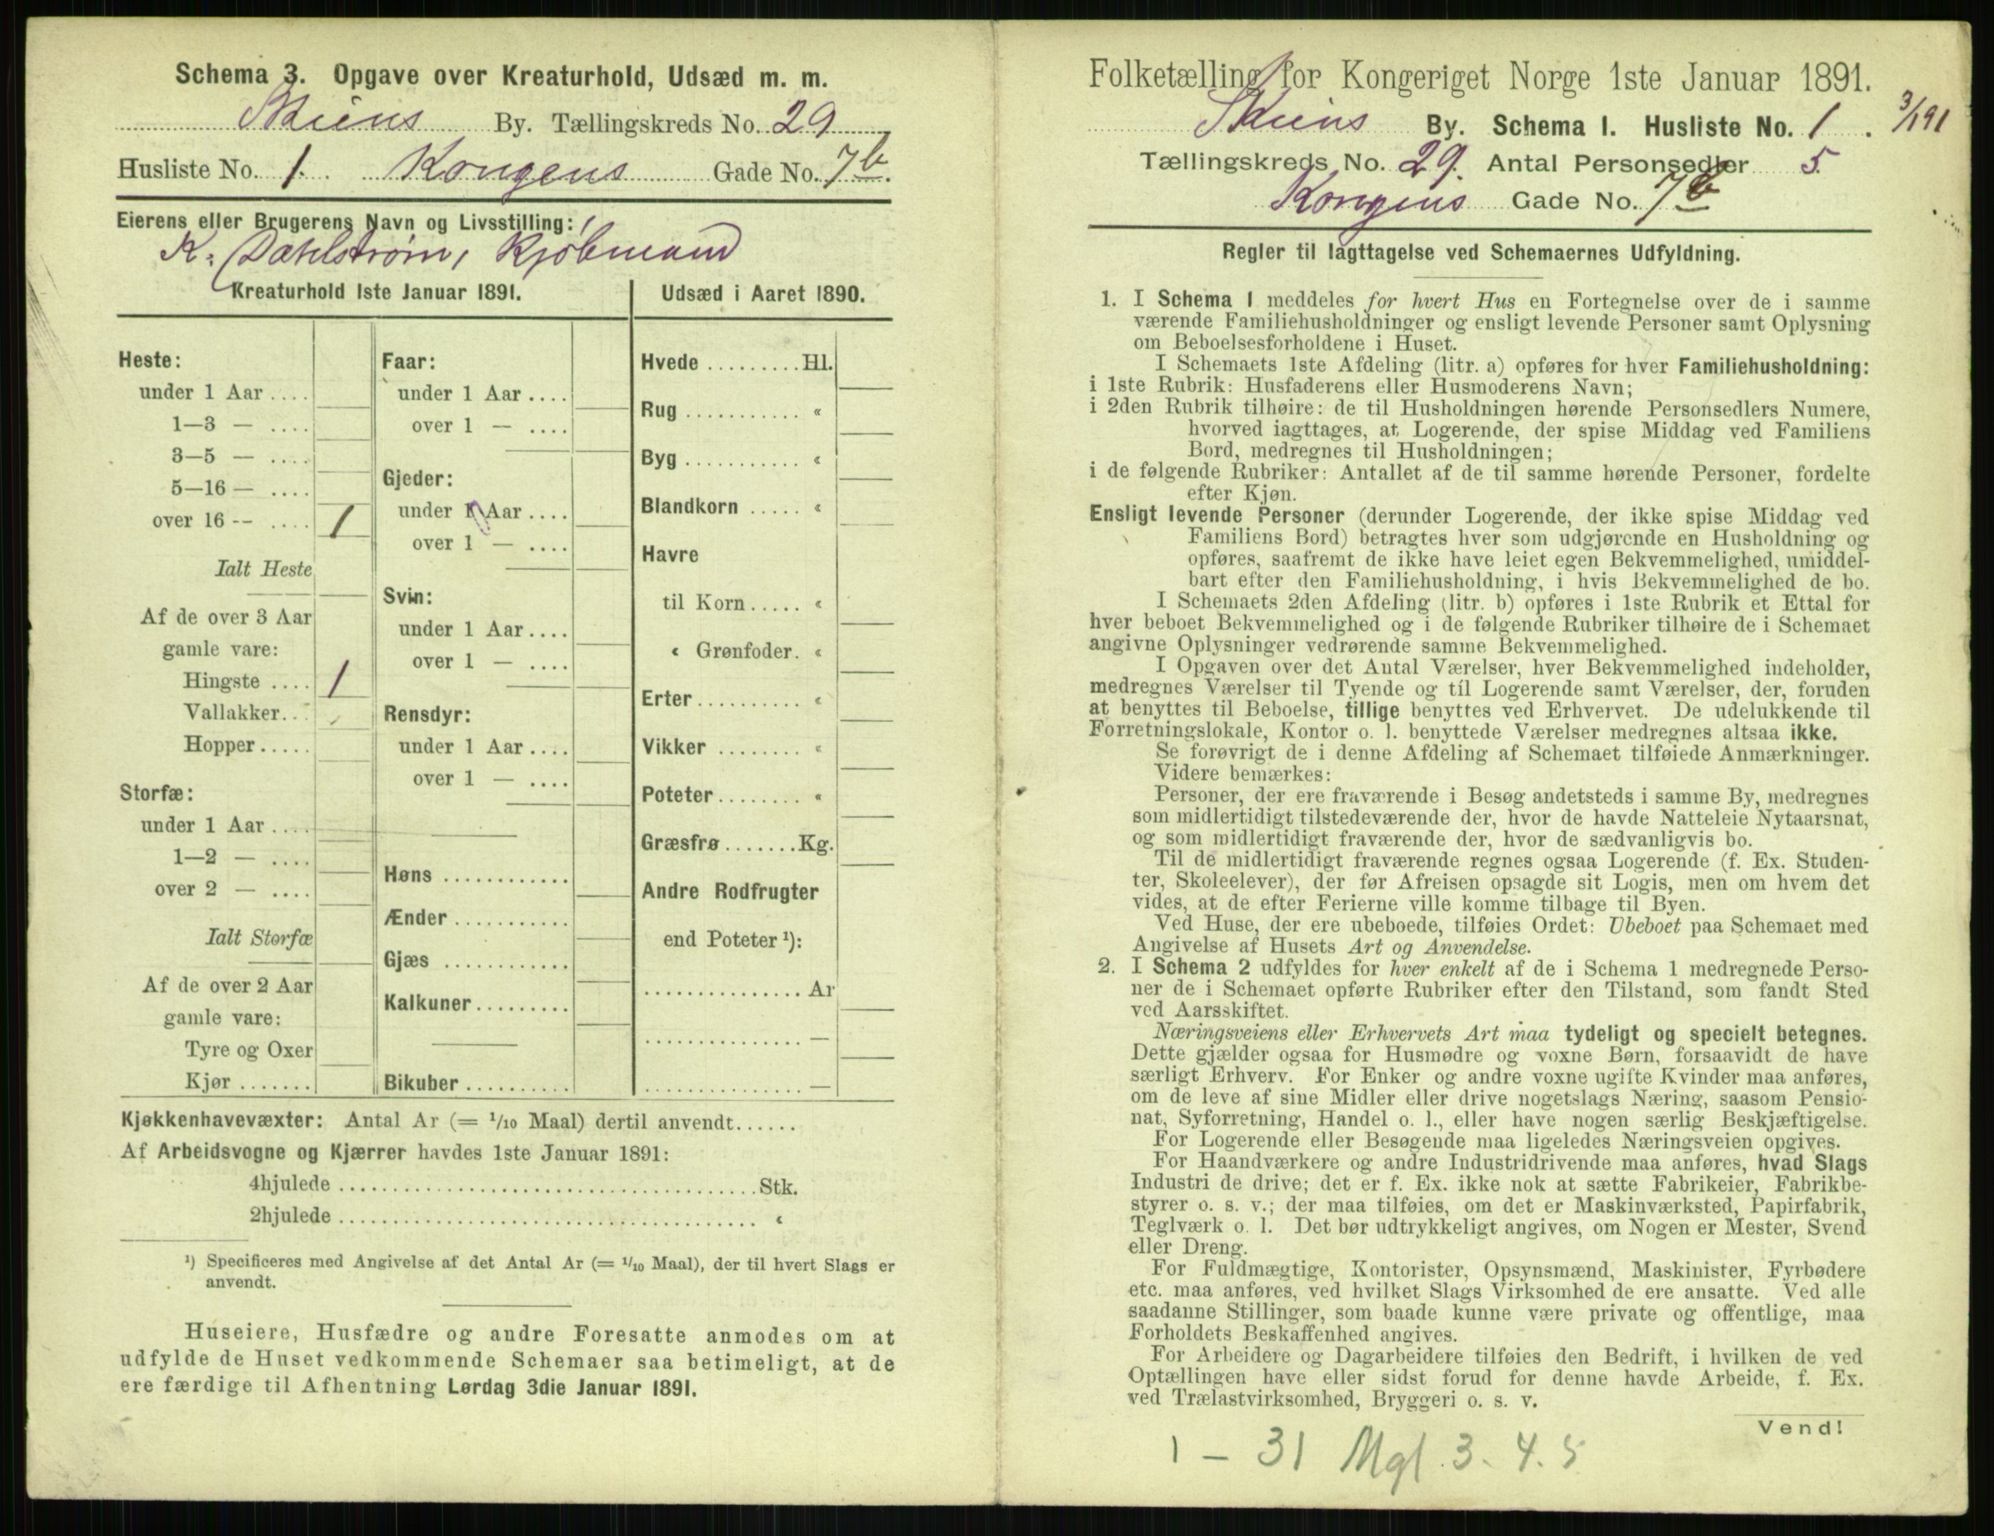 Schema 3. Opgave over Kreaturhold, Udsæd m. m.
Skiens By. Tællingskreds No. 29
Husliste No. 1. Kongens Gade No. 7b.
Eierens eller Brugerens Navn og Livsstilling:
K. Dahlstrøm, Kjøbmand
Kreaturhold 1ste Januar 1891.
Heste:
under 1 Aar ....
1—3 — ....
3—5 — ....
5—16 — ....
over 16 -- .... 1
Ialt Heste
Af de over 3 Aar
gamle vare:
Hingste .... 1
Vallakker...
Hopper.....
Storfæ:
under 1 Aar ....
1—2 — ....
over 2 — ....
Ialt Storfæ
Af de over 2 Aar
gamle vare:
Tyre og Oxer
Kjør .......
Faar:
under 1 Aar ....
over 1 — ....
Gjeder:
under 1 Aar ....
over 1 — ....
Svin:
under 1 Aar ....
over 1 — ....
Rensdyr:
under 1 Aar ....
over 1 — ....
Høns ............
Ænder ...........
Gjæs ............
Kalkuner.........
Bikuber ..........
Udsæd i Aaret 1890.
Hvede .........Hl.
Rug ........... «
Byg ........... «
Blandkorn ..... «
Havre
til Korn ..... «
« Grønfoder. «
Erter.......... «
Vikker ........ «
Poteter........ «
Græsfrø.......Kg.
Andre Rodfrugter
end Poteter ¹):
............... Ar
............... —
............... —
Kjøkkenhavevæxter: Antal Ar (= 1/10 Maal) dertil anvendt......
Af Arbeidsvogne og Kjærrer havdes 1ste Januar 1891:
4hjulede ........................................Stk.
2hjulede ........................................ «
¹) Specificeres med Angivelse af det Antal Ar (= 1/10 Maal), der til hvert Slags er
anvendt.
Huseiere, Husfædre og andre Foresatte anmodes om at
udfylde de Huset vedkommende Schemaer saa betimeligt, at de
ere færdige til Afhentning Lørdag 3die Januar 1891.
Folketælling for Kongeriget Norge 1ste Januar 1891.
Skiens By. Schema I. Husliste No. 1. 3/1 91
Tællingskreds No. 29. Antal Personsedler 5
Kongens Gade No. 7b
Regler til Iagttagelse ved Schemaernes Udfyldning.
1. I Schema 1 meddeles for hvert Hus en Fortegnelse over de i samme
værende Familiehusholdninger og ensligt levende Personer samt Oplysning
om Beboelsesforholdene i Huset.
I Schemaets 1ste Afdeling (litr. a) opføres for hver Familiehusholdning:
i 1ste Rubrik: Husfaderens eller Husmoderens Navn;
i 2den Rubrik tilhøire: de til Husholdningen hørende Personsedlers Numere,
hvorved iagttages, at Logerende, der spise Middag ved Familiens
Bord, medregnes til Husholdningen;
i de følgende Rubriker: Antallet af de til samme hørende Personer, fordelte
efter Kjøn.
Ensligt levende Personer (derunder Logerende, der ikke spise Middag ved
Familiens Bord) betragtes hver som udgjørende en Husholdning og
opføres, saafremt de ikke have leiet egen Bekvemmelighed, umiddel-
bart efter den Familiehusholdning, i hvis Bekvemmelighed de bo.
I Schemaets 2den Afdeling (litr. b) opføres i 1ste Rubrik et Ettal for
hver beboet Bekvemmelighed og i de følgende Rubriker tilhøire de i Schemaet
angivne Oplysninger vedrørende samme Bekvemmelighed.
I Opgaven over det Antal Værelser, hver Bekvemmelighed indeholder,
medregnes Værelser til Tyende og til Logerende samt Værelser, der, foruden
at benyttes til Beboelse, tillige benyttes ved Erhvervet. De udelukkende til
Forretningslokale, Kontor o. l. benyttede Værelser medregnes altsaa ikke.
Se forøvrigt de i denne Afdeling af Schemaet tilføiede Anmærkninger.
Videre bemærkes:
Personer, der ere fraværende i Besøg andetsteds i samme By, medregnes
som midlertidigt tilstedeværende der, hvor de havde Natteleie Nytaarsnat,
og som midlertidigt fraværende der, hvor de sædvanligvis bo.
Til de midlertidigt fraværende regnes ogsaa Logerende (f. Ex. Studen-
ter, Skoleelever), der før Afreisen opsagde sit Logis, men om hvem det
vides, at de efter Ferierne ville komme tilbage til Byen.
Ved Huse, der ere ubeboede, tilføies Ordet: Ubeboet paa Schemaet med
Angivelse af Husets Art og Anvendelse.
2. I Schema 2 udfyldes for hver enkelt af de i Schema 1 medregnede Perso-
ner de i Schemaet opførte Rubriker efter den Tilstand, som fandt Sted
ved Aarsskiftet.
Næringsveiens eller Erhvervets Art maa tydeligt og specielt betegnes.
Dette gjælder ogsaa for Husmødre og voxne Børn, forsaavidt de have
særligt Erhverv. For Enker og andre voxne ugifte Kvinder maa anføres,
om de leve af sine Midler eller drive nogetslags Næring, saasom Pensio-
nat, Syforretning, Handel o. l., eller have nogen særlig Beskjæftigelse.
For Logerende eller Besøgende maa ligeledes Næringsveien opgives.
For Haandværkere og andre Industridrivende maa anføres, hvad Slags
Industri de drive; det er f. Ex. ikke nok at sætte Fabrikeier, Fabrikbe-
styrer o. s. v.; der maa tilføies, om det er Maskinværksted, Papirfabrik,
Teglværk o. l. Det bør udtrykkeligt angives, om Nogen er Mester, Svend
eller Dreng.
For Fuldmægtige, Kontorister, Opsynsmænd, Maskinister, Fyrbødere
etc. maa anføres, ved hvilket Slags Virksomhed de ere ansatte. Ved alle
saadanne Stillinger, som baade kunne være private og offentlige, maa
Forholdets Beskaffenhed angives.
For Arbeidere og Dagarbeidere tilføies den Bedrift, i hvilken de ved
Optællingen have eller sidst forud for denne havde Arbeide, f. Ex.
ved Trælastvirksomhed, Bryggeri o. s. v.
Vend!
1 – 31 Mgl. 3. 4. 5